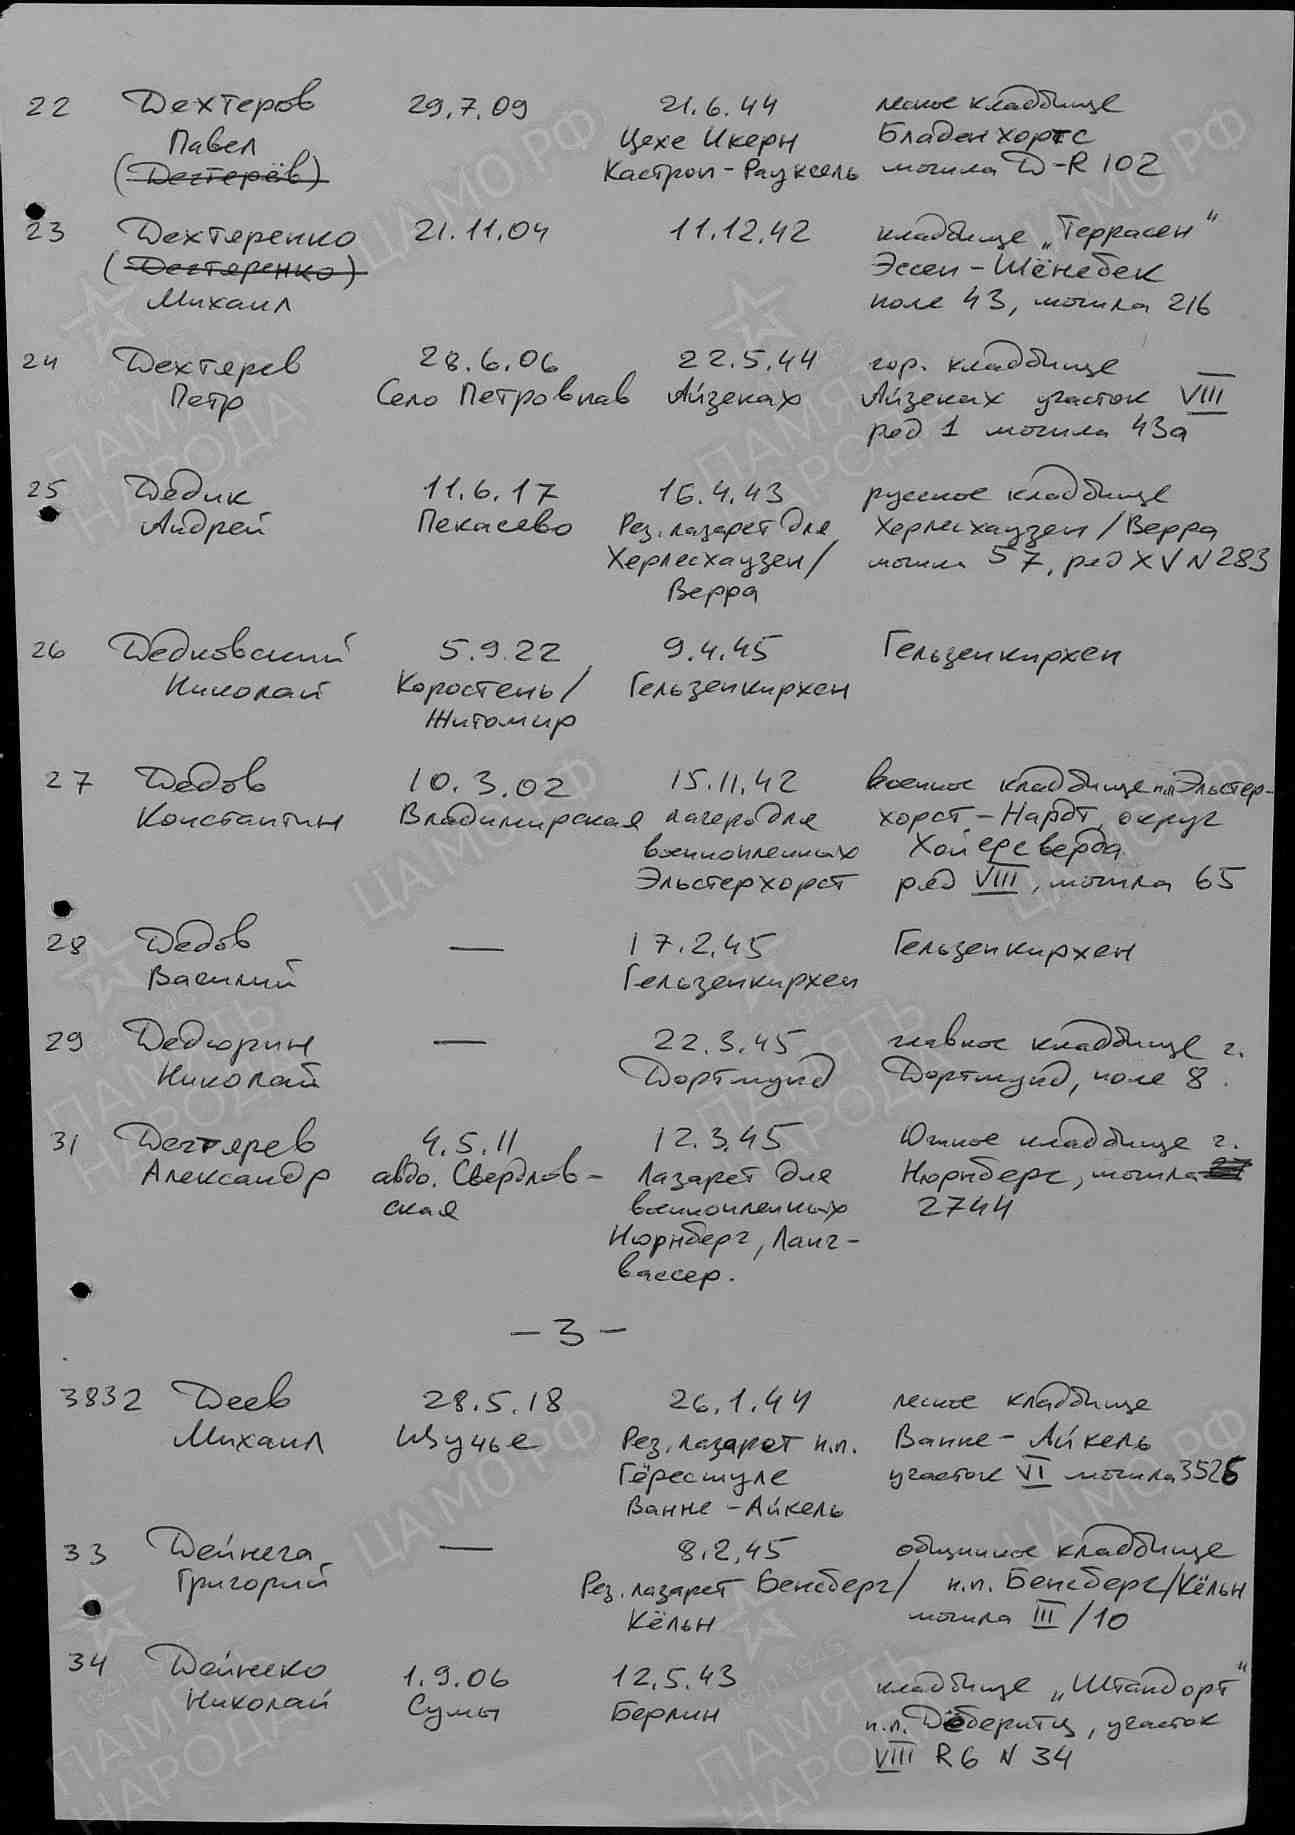 22 Дехтеров 29.7.09 21.6.44 лесное кладбище
Павел Цехе Икерн Бладенхорст
(Дегтерёв) Кастроп-Рауксель могила D-R 102
23 Дехтяренко 21.11.04 11.12.42 кладбище „Террасен"
(Дегтяренко) Эссен-Шёнебек
Михаил поле 43, могила 216
24 Дехтярев 28.6.06 22.5.44 гор. кладбище
Петр Село Петровпав Айзенах Айзенах участок VIII
ряд 1 могила 43а
25 Дедик 11.6.17 16.4.43 русское кладбище
Андрей Пекасево Рез. лазарет для Херлесхаузен/Верра
Херлесхаузен/ могила 57, ряд XV N 283
Верра
26 Дедковский 5.9.22 9.4.45 Гельзенкирхен
Николай Коростень/ Гельзенкирхен
Житомир
27 Дедов 10.3.02 15.11.42 военное кладбище н.п. Эльстер-
Константин Владимирская лагеря для хорст-Нардт, округ
военнопленных Хойерсверда
Эльстерхорст ряд VIII, могила 65
28 Дедов — 17.2.45 Гельзенкирхен
Василий Гельзенкирхен
29 Дедюрин — 22.3.45 главное кладбище г.
Николай Дортмунд Дортмунд, поле 8.
31 Дегтярев 4.5.11 12.3.45 Южное кладбище г.
Александр Свердлов- Лазарет для Нюрнберг, могила
ская военнопленных 2744
Нюрнберг, Ланг-
вассер.
-3-
3832 Деев 28.5.18 26.1.44 лесное кладбище
Михаил Щучье Рез. лазарет н.п. Ванне-Айкель
Гёресшуле участок VI могила 3526
Ванне-Айкель
33 Дейнега — 8.2.45 общинное кладбище
Григорий Рез. лазарет Бенсберг/ н.п. Бенсберг/Кёльн
Кёльн могила III/10
34 Дейнеко 1.9.06 12.5.43 кладбище „Штандорт"
Николай Сумы Берлин н.п. Дёберитц, участок
VIII R6 N 34